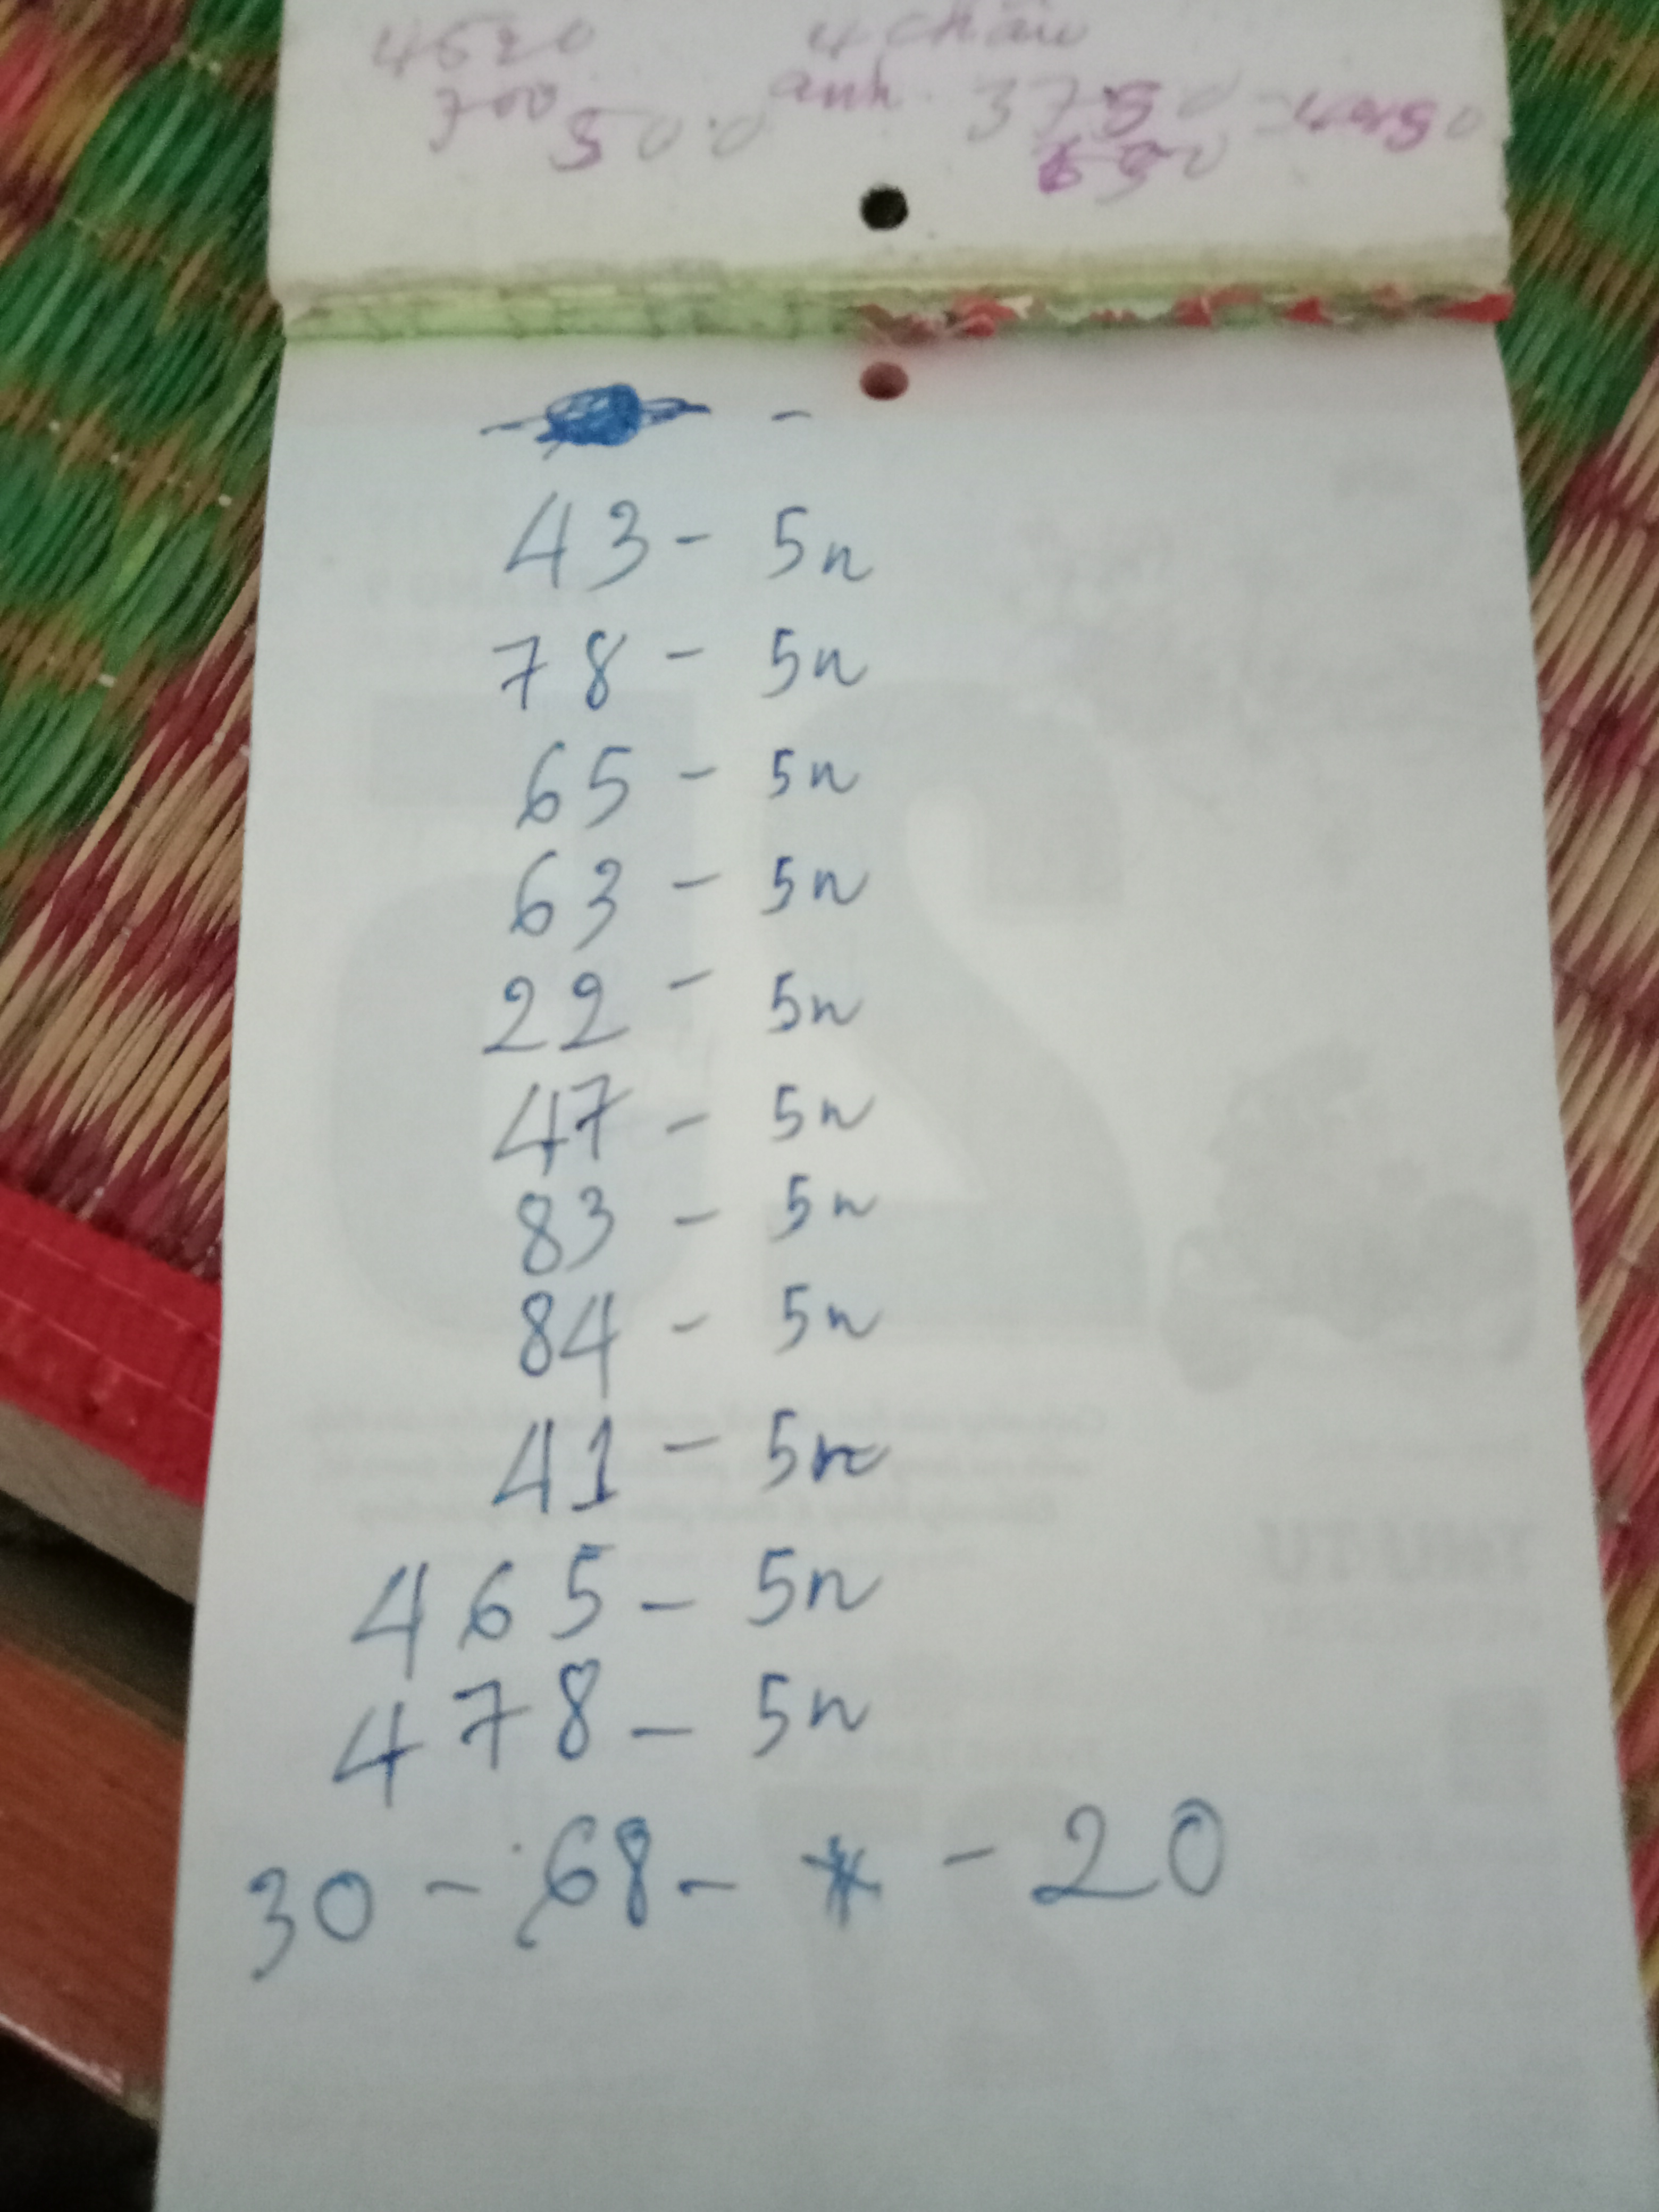 4620 4 châu
700 anh. 3750 = 4450
500.0 650
-
43 - 5n
78 - 5n
65 - 5n
63 - 5n
22 - 5n
47 - 5n
83 - 5n
84 - 5n
41 - 5n
465 - 5n
478 - 5n
30 - 68 - * - 20